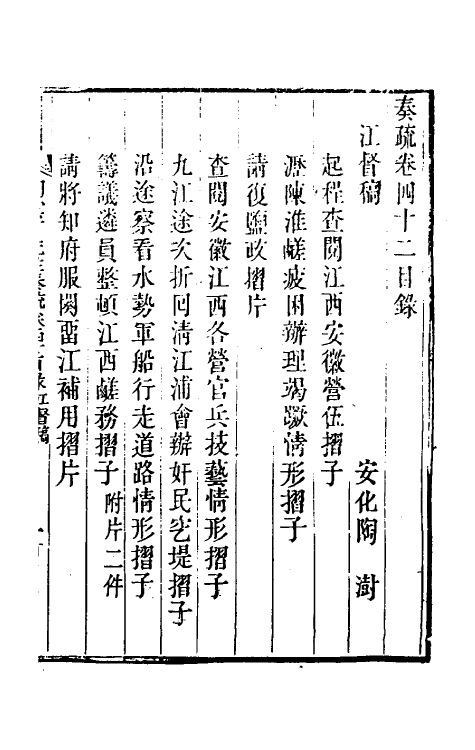 奏疏卷四十二目錄
江督稿　安化陶　澍
起程查閱江西安徽營伍摺子
瀝陳淮鹺疲困辦理竭蹶情形摺子
請復鹽政摺片
查閱安徽江西各營官兵技藝情形摺子
九江途次折回清江浦會辦奸民乞堤摺子
沿途察看水勢軍船行走道路情形摺子
籌議遴員整頓江西鹺務摺子　附片二件
請將知府服闋畱江補用摺片